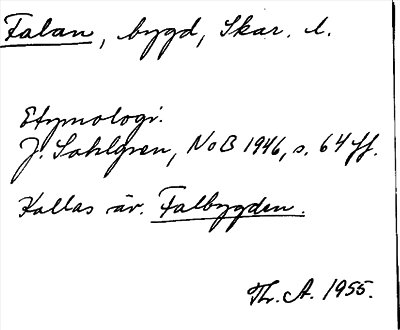 Falan, bygd, Skar. l.
Etymologi.
J. Sahlgren, NoB 1946, s. 64 ff.
Kallas äv. Falbygden.
Thr. A. 1955.